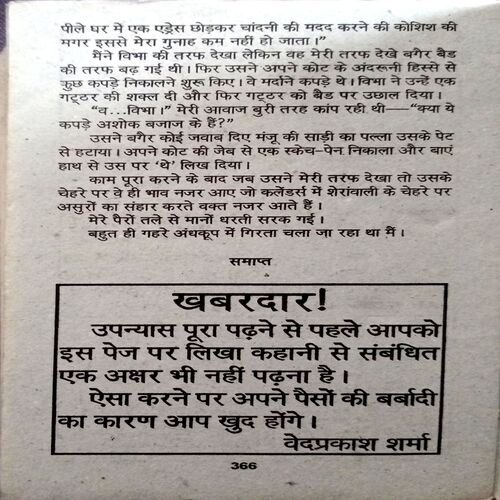 पीले घर में एक एड्रेस छोड़कर चांदनी की मदद करने की कोशिश की
मगर इससे मेरा गुनाह कम नहीं हो जाता।”
मैंने विभा की तरफ देखा लेकिन वह मेरी तरफ देखे बगैर बैड
की तरफ बढ़ गई थी। फिर उसने अपने कोट के अंदरूनी हिस्से से
कुछ कपड़े निकालने शुरू किए। वे मर्दाने कपड़े थे। विभा ने उन्हें एक
गट्ठर की शक्ल दी और फिर गट्ठर को बैड पर उछाल दिया।
“व...विभा।” मेरी आवाज बुरी तरह कांप रही थी—“क्या ये
कपड़े अशोक बजाज के हैं?”
उसने बगैर कोई जवाब दिए मंजू की साड़ी का पल्ला उसके पेट
से हटाया। अपने कोट की जेब से एक स्केच-पेन निकाला और बाएं
हाथ से उस पर ‘थे’ लिख दिया।
काम पूरा करने के बाद जब उसने मेरी तरफ देखा तो उसके
चेहरे पर वे ही भाव नजर आए जो कलेंडर्स में शेरांवाली के चेहरे पर
असुरों का संहार करते वक्त नजर आते हैं।
मेरे पैरों तले से मानों धरती सरक गई।
बहुत ही गहरे अंधकूप में गिरता चला जा रहा था मैं।
समाप्त
खबरदार!
उपन्यास पूरा पढ़ने से पहले आपको
इस पेज पर लिखा कहानी से संबंधित
एक अक्षर भी नहीं पढ़ना है।
ऐसा करने पर अपने पैसों की बर्बादी
का कारण आप खुद होंगे।
वेदप्रकाश शर्मा
366